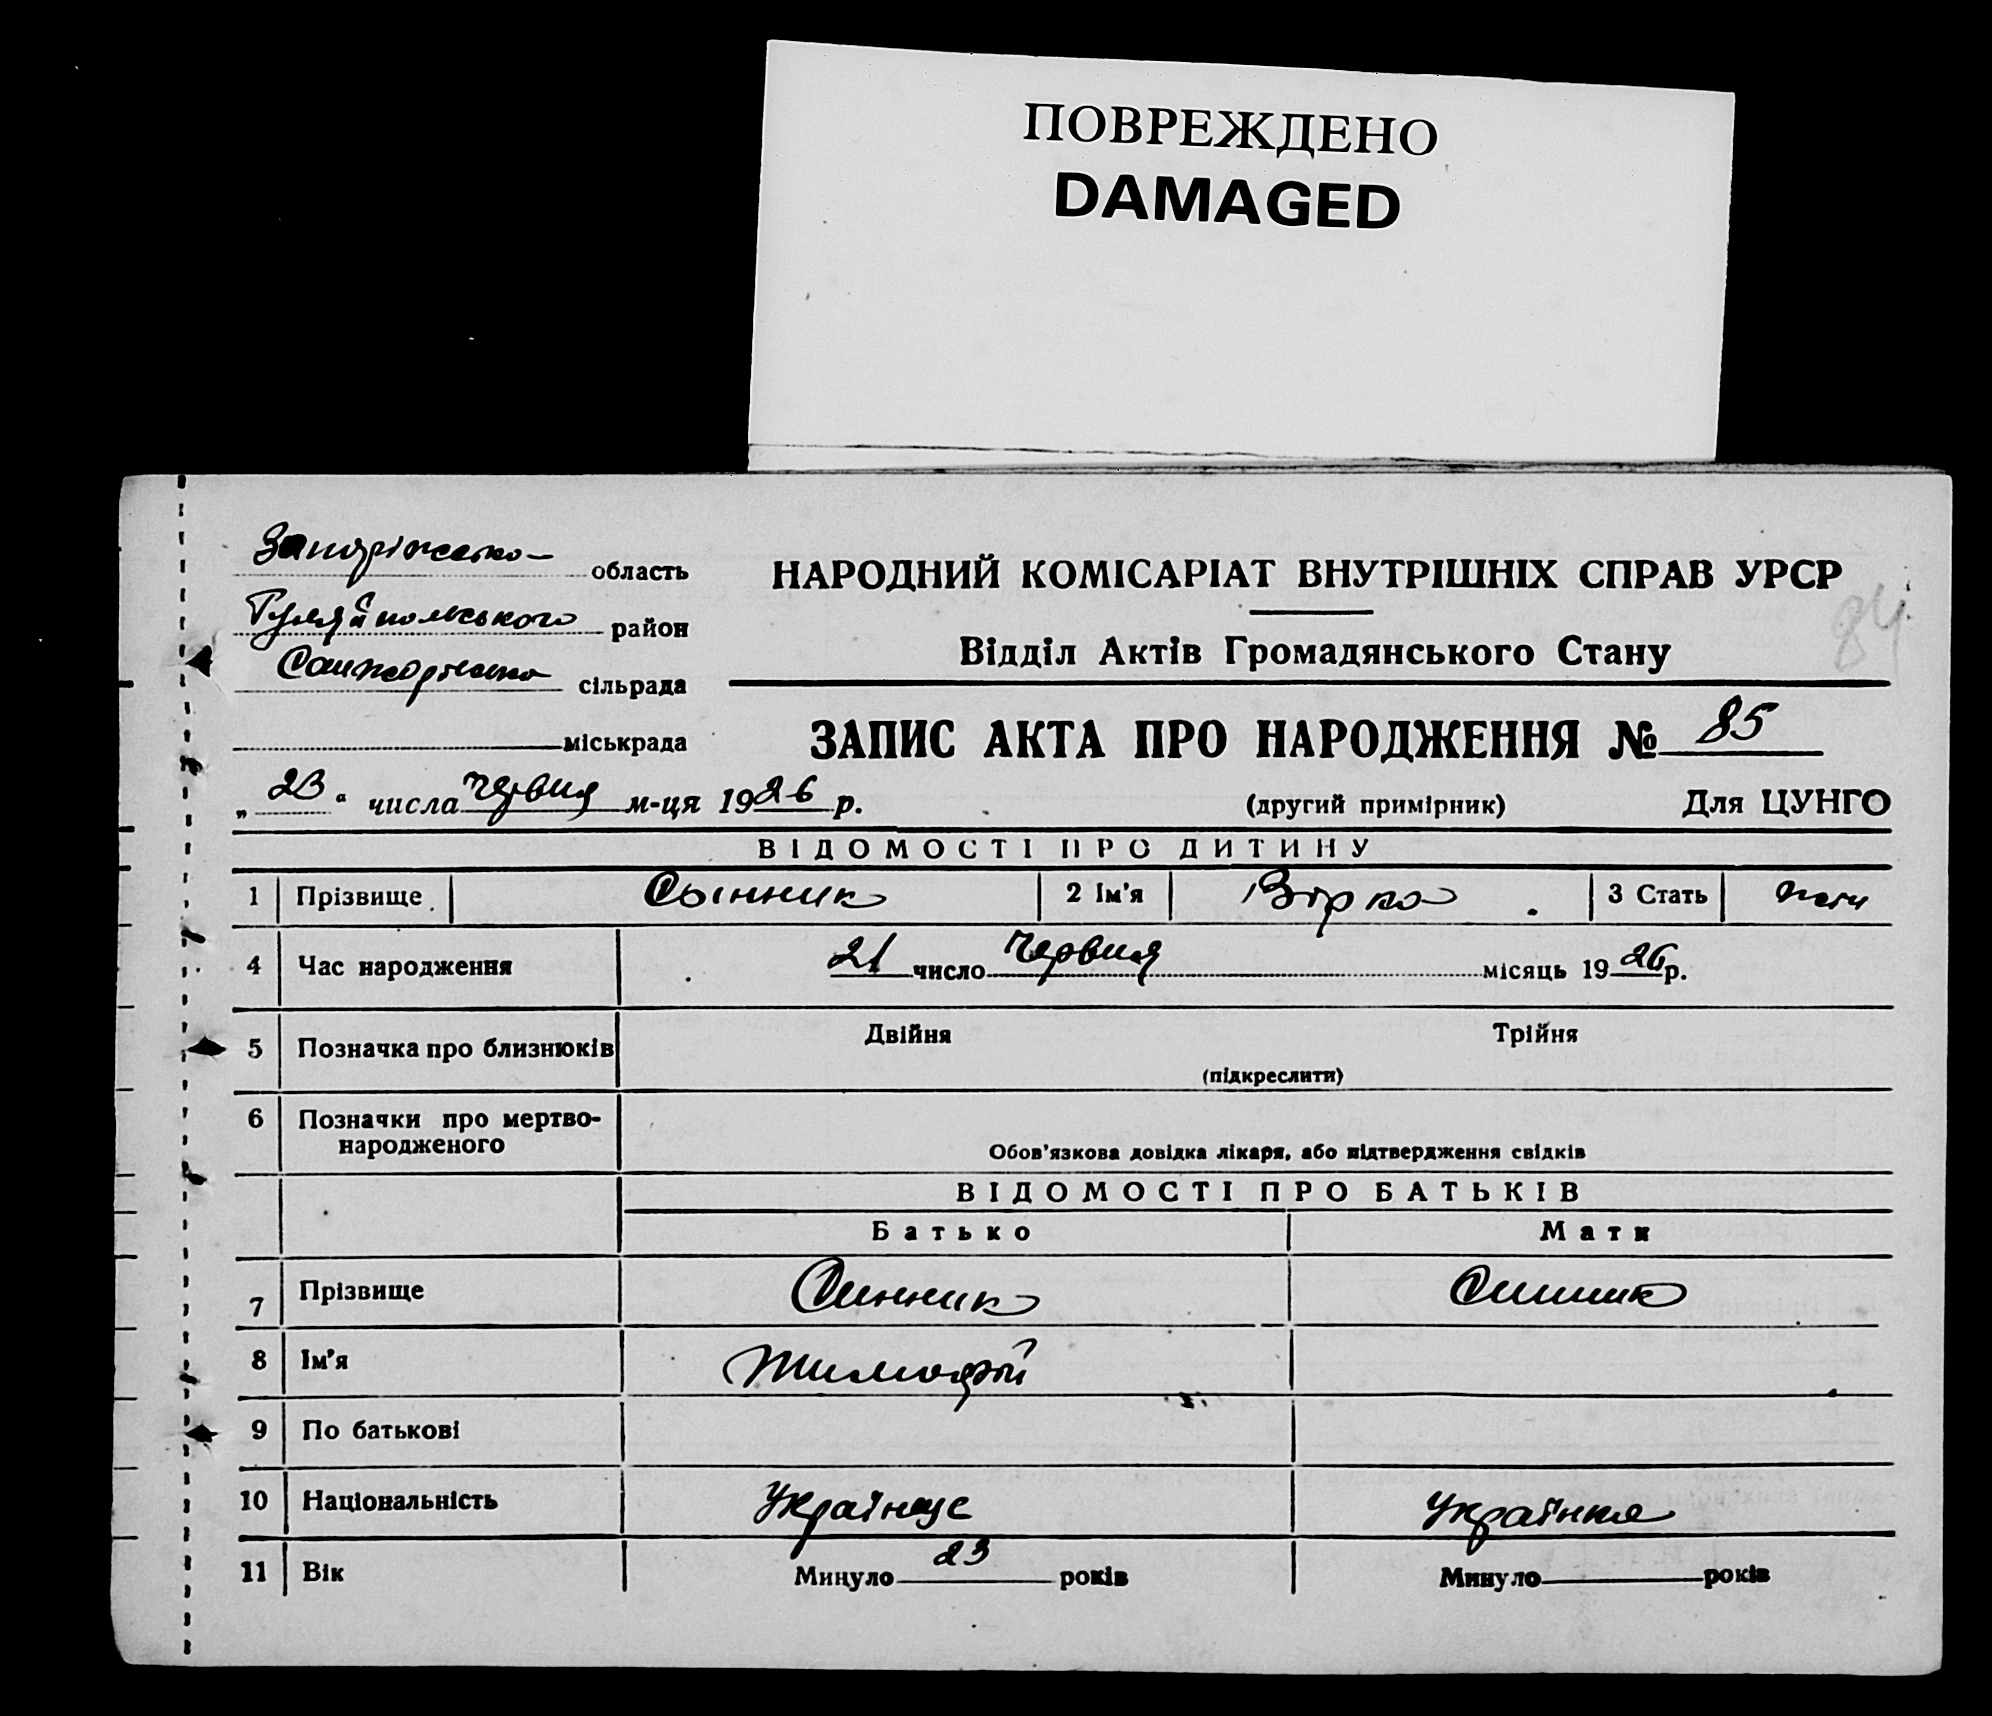 ПОВРЕЖДЕНО
DAMAGED
Запоріжська область
Гуляйпольського район
сільрада
міськрада
НАРОДНИЙ КОМІСАРІАТ ВНУТРІШНІХ СПРАВ УРСР
84
Відділ Актів Громадянського Стану
ЗАПИС АКТА ПРО НАРОДЖЕННЯ № 85
„23“ числа червня м-ця 1926 р. (другий примірник) Для ЦУНГО
ВІДОМОСТІ ПРО ДИТИНУ
1 Прізвище Сынник 2 Ім'я Вірка 3 Стать жін
4 Час народження 21 число червня місяць 1926 р.
5 Позначка про близнюків Двійня Трійня
(підкреслити)
6 Позначки про мертво-
народженого
Обов'язкова довідка лікаря, або підтвердження свідків
ВІДОМОСТІ ПРО БАТЬКІВ
Батько Мати
7 Прізвище Синник Синник
8 Ім'я Тимофій
9 По батькові
10 Національність Українец Українка
11 Вік Минуло 23 років Минуло років